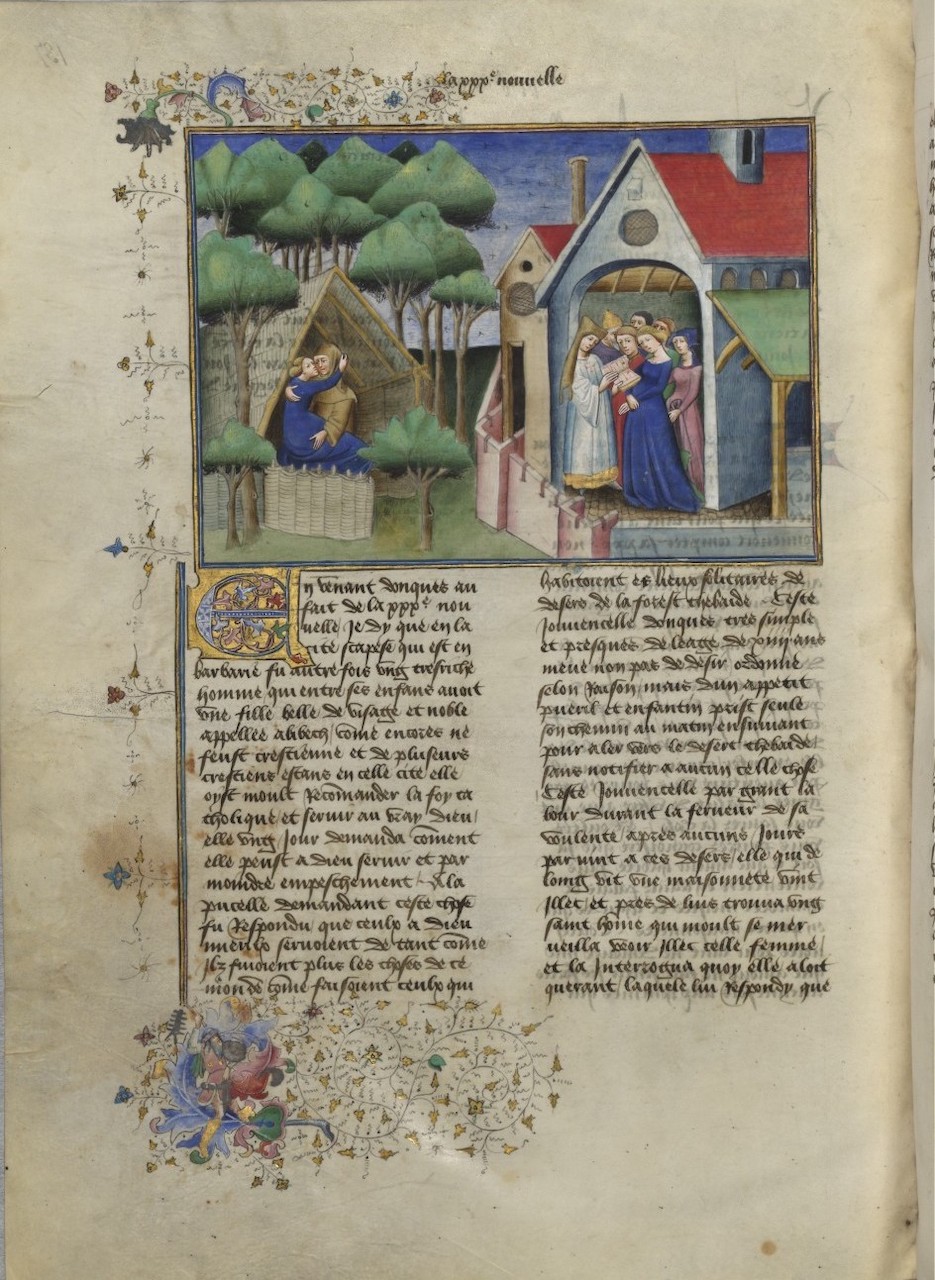 La xxxe nouvelle
En venant donques au
fait de la xxxe nou
velle Je dy que en la
cite scapese qui est en
barbarie fu autrefois ung tresriche
homme qui entre ses enfans avoit
une fille belle de visage et noble
appellee alibech come encores ne
feust crestienne et de plusieurs
crestiens estans en celle cite elle
oyst moult Recomander la foy ca
tholique et servir au vray dieu
elle ung Jour demanda coment
elle peust a dieu servir et par
moindre empeschement. A la
pucelle demandant ceste chose
fu Respondu que ceulx a dieu
mieulx servoient de tant come
Ilz fuioient plus les choses de ce
monde come faisoient ceulx qui
habitoient es lieux solitaires de
desers de la forest thebaide. Ceste
Jouvencelle donques tres simple
et presques de leage de xiiij ans
meue non pas de desir ordonne
selon Raison mais dun appetit
pueril et enfantin prist seule
son chemin au matin ensuivant
pour aler vers le desert thebaide
sans notifier a aucun celle chose
Ceste Jouvencelle par grant la
bour durant la ferveur de sa
voulente apres aucuns Jours
parvint a ces desers elle qui de
loing vit une maisonnete vint
Illec et pres de luis trouva ung
saint home qui moult se mer
veilla veoir Illec celle femme
et la Interrogua quoy elle aloit
querant laquele lui Respondy que